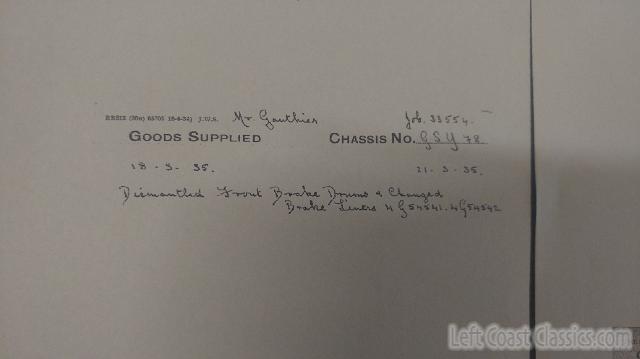 RRS12 (20m) 63701 15-6-34) J.W.S. Mr Gauthier Job. 33554.
GOODS SUPPLIED CHASSIS No. GSY 78
18-3-35. 21-3-35.
Dismantled Front Brake Drums & Changed
Brake Liners 4 G54541. 4 G54542
Left Coast Classics.com